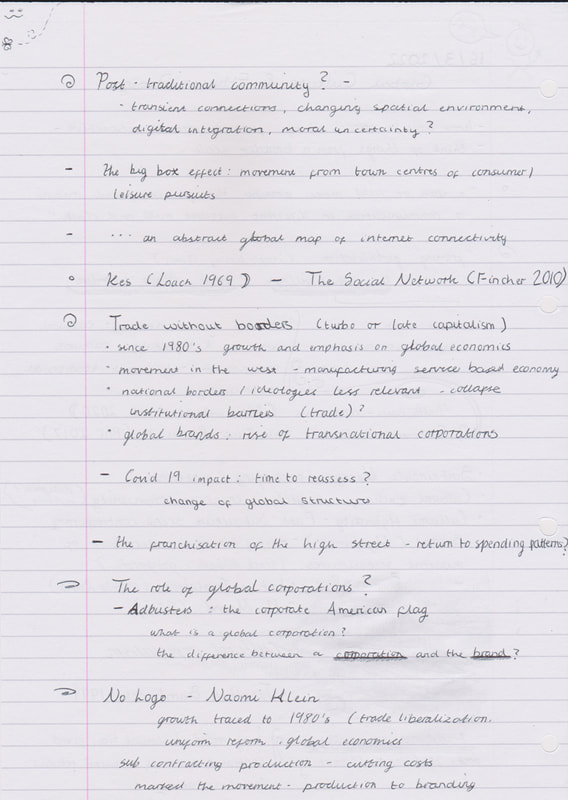 Post-traditional community? -
· transient connections, changing spatial environment,
digital integration, moral uncertainty?
- the big box effect: movement from town centres of consumer/
leisure pursuits
- ... an abstract global map of internet connectivity
Kes (Loach 1969) - The Social Network (Fincher 2010)
Trade without borders (turbo or late capitalism)
· since 1980's growth and emphasis on global economics
· movement in the west - manufacturing service based economy
· national borders / ideologies less relevant - collapse
institutional barriers (trade)?
· global brands: rise of transnational corporations
- Covid 19 impact: time to reassess?
change of global structure
- the franchisation of the high street - return to spending patterns?
The role of global corporations?
- Adbusters: the corporate American flag
what is a global corporation?
the difference between a corporation and the brand?
No Logo - Naomi Klein
growth traced to 1980's (trade liberalization.
uniform reform. global economics
sub contracting production - cutting costs
marked the movement - production to branding